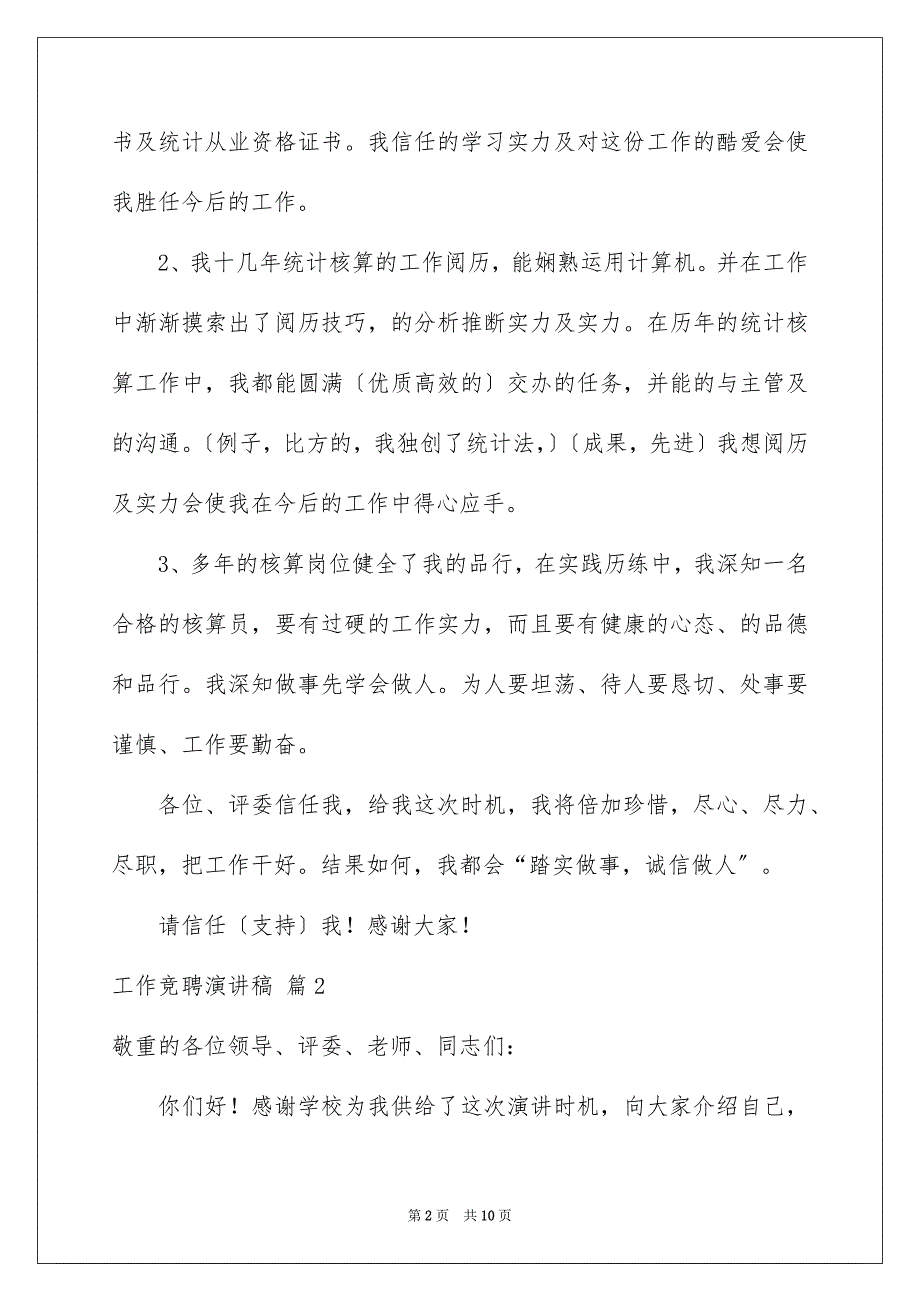 书及统计从业资格证书。我信任的学习实力及对这份工作的酷爱会使
我胜任今后的工作。
2、我十几年统计核算的工作阅历，能娴熟运用计算机。并在工作
中渐渐摸索出了阅历技巧，的分析推断实力及实力。在历年的统计核
算工作中，我都能圆满〔优质高效的〕交办的任务，并能的与主管及
的沟通。〔例子，比方的，我独创了统计法，〕〔成果，先进〕我想阅历
及实力会使我在今后的工作中得心应手。
3、多年的核算岗位健全了我的品行，在实践历练中，我深知一名
合格的核算员，要有过硬的工作实力，而且要有健康的心态、的品德
和品行。我深知做事先学会做人。为人要坦荡、待人要恳切、处事要
谨慎、工作要勤奋。
各位、评委信任我，给我这次时机，我将倍加珍惜，尽心、尽力、
尽职，把工作干好。结果如何，我都会“踏实做事，诚信做人〞。
请信任〔支持〕我！感谢大家！
工作竞聘演讲稿 篇2
敬重的各位领导、评委、老师、同志们：
你们好！感谢学校为我供给了这次演讲时机，向大家介绍自己，
第 2 页 共 10 页